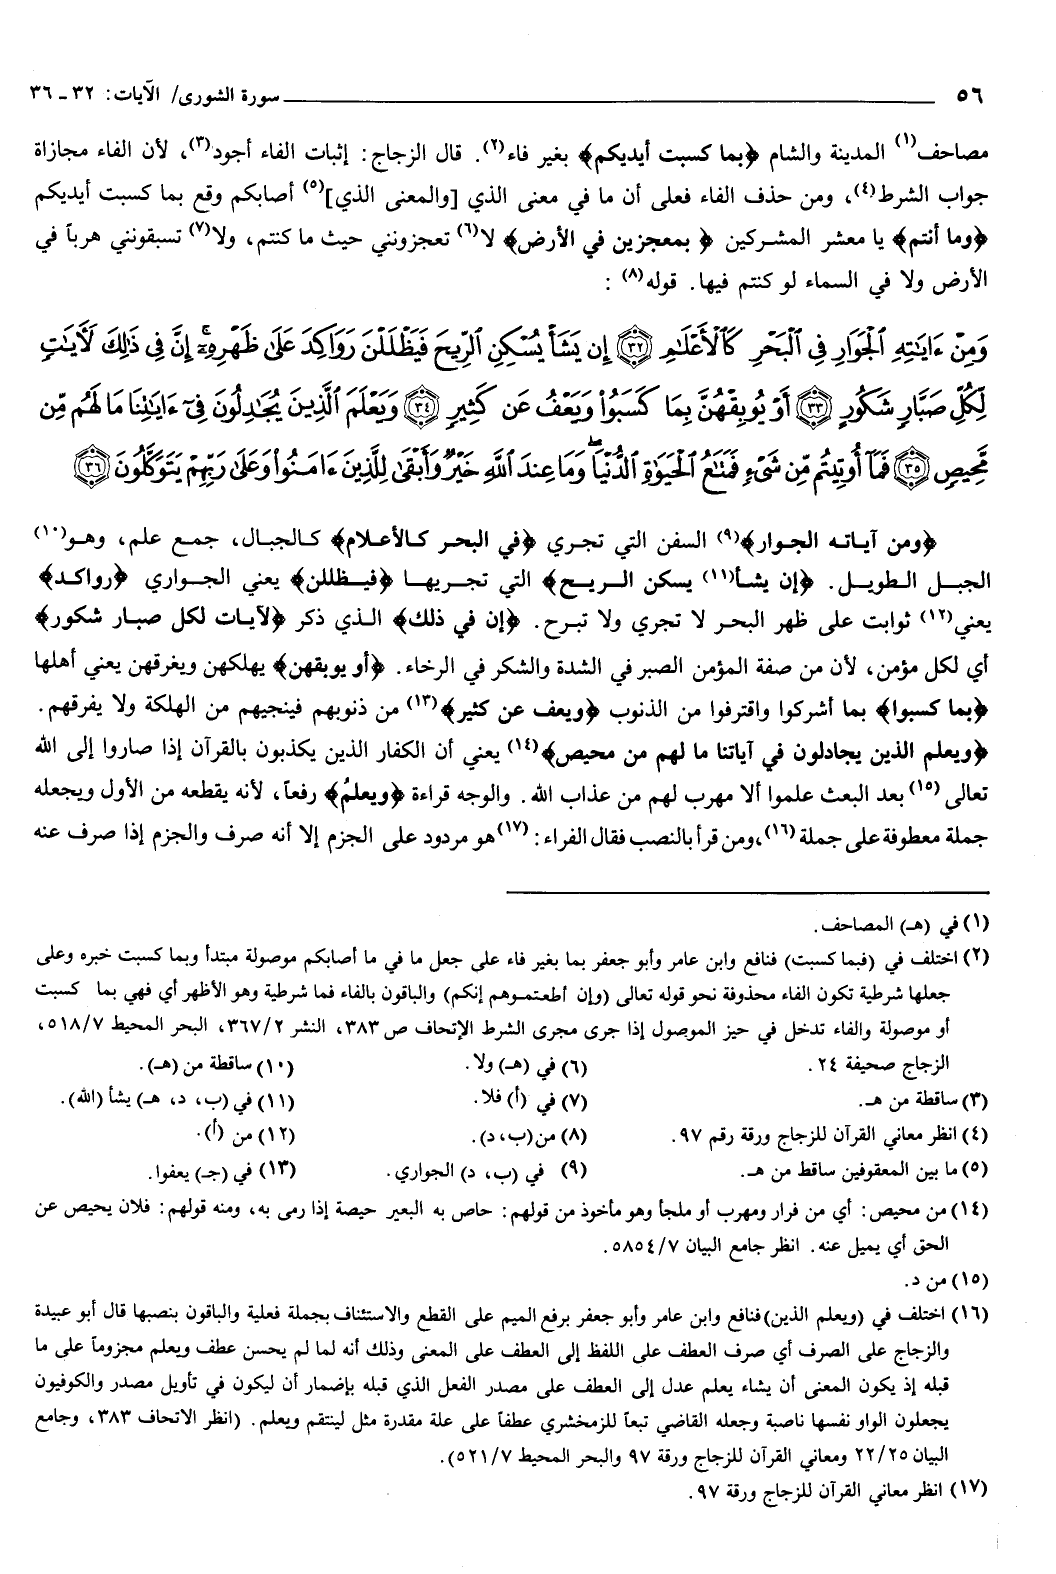 ٥٦ سورة الشورى/ الآيات: ٣٢ ـ ٣٦
مصاحف(١) المدينة والشام ﴿بما كسبت أيديكم﴾ بغير فاء(٢). قال الزجاج: إثبات الفاء أجود(٣)، لأن الفاء مجازاة
جواب الشرط(٤)، ومن حذف الفاء فعلى أن ما في معنى الذي [والمعنى الذي](٥) أصابكم وقع بما كسبت أيديكم
﴿وما أنتم﴾ يا معشر المشركين ﴿ بمعجزين في الأرض﴾ لا(٦) تعجزونني حيث ما كنتم، ولا(٧) تسبقونني هرباً في
الأرض ولا في السماء لو كنتم فيها. قوله(٨) :
وَمِنْ ءَايَٰتِهِ ٱلْجَوَارِ فِى ٱلْبَحْرِ كَٱلْأَعْلَٰمِ ٣٢ إِن يَشَأْ يُسْكِنِ ٱلرِّيحَ فَيَظْلَلْنَ رَوَاكِدَ عَلَىٰ ظَهْرِهِۦٓ ۚ إِنَّ فِى ذَٰلِكَ لَءَايَٰتٍ
لِّكُلِّ صَبَّارٍ شَكُورٍ ٣٣ أَوْ يُوبِقْهُنَّ بِمَا كَسَبُوا۟ وَيَعْفُ عَن كَثِيرٍ ٣٤ وَيَعْلَمَ ٱلَّذِينَ يُجَٰدِلُونَ فِىٓ ءَايَٰتِنَا مَا لَهُم مِّن
مَّحِيصٍ ٣٥ فَمَآ أُوتِيتُم مِّن شَىْءٍ فَمَتَٰعُ ٱلْحَيَوٰةِ ٱلدُّنْيَا ۖ وَمَا عِندَ ٱللَّهِ خَيْرٌ وَأَبْقَىٰ لِلَّذِينَ ءَامَنُوا۟ وَعَلَىٰ رَبِّهِمْ يَتَوَكَّلُونَ ٣٦
﴿ومن آياته الجوار﴾(٩) السفن التي تجري ﴿في البحر كالأعلام﴾ كالجبال، جمع علم، وهو(١٠)
الجبل الطويل. ﴿إن يشأ(١١) يسكن الريح﴾ التي تجريها ﴿فيظللن﴾ يعني الجواري ﴿رواكد﴾
يعني(١٢) ثوابت على ظهر البحر لا تجري ولا تبرح. ﴿إن في ذلك﴾ الذي ذكر ﴿لآيات لكل صبار شكور﴾
أي لكل مؤمن، لأن من صفة المؤمن الصبر في الشدة والشكر في الرخاء. ﴿أو يوبقهن﴾ يهلكهن ويغرقهن يعني أهلها
﴿بما كسبوا﴾ بما أشركوا واقترفوا من الذنوب ﴿ويعف عن كثير﴾(١٣) من ذنوبهم فينجيهم من الهلكة ولا يفرقهم.
﴿ويعلم الذين يجادلون في آياتنا ما لهم من محيص﴾(١٤) يعني أن الكفار الذين يكذبون بالقرآن إذا صاروا إلى الله
تعالى(١٥) بعد البعث علموا ألا مهرب لهم من عذاب الله. والوجه قراءة ﴿ويعلمُ﴾ رفعاً، لأنه يقطعه من الأول ويجعله
جملة معطوفة على جملة(١٦)، ومن قرأ بالنصب فقال الفراء:(١٧) هو مردود على الجزم إلا أنه صرف والجزم إذا صرف عنه
(١) في (هـ) المصاحف.
(٢) اختلف في (فبما كسبت) فنافع وابن عامر وأبو جعفر بما بغير فاء على جعل ما في ما أصابكم موصولة مبتدأ وبما كسبت خبره وعلى
جعلها شرطية تكون الفاء محذوفة نحو قوله تعالى (وإن أطعتموهم إنكم) والباقون بالفاء فما شرطية وهو الأظهر أي فهي بما كسبت
أو موصولة والفاء تدخل في حيز الموصول إذا جرى مجرى الشرط الإتحاف ص ٣٨٣، النشر ٣٦٧/٢، البحر المحيط ٥١٨/٧،
الزجاج صحيفة ٢٤.
(٣) ساقطة من هـ.
(٤) انظر معاني القرآن للزجاج ورقة رقم ٩٧.
(٥) ما بين المعقوفين ساقط من هـ.
(٦) في (هـ) ولا.
(٧) في (أ) فلا.
(٨) من (ب، د).
(٩) في (ب، د) الجواري.
(١٠) ساقطة من (هـ).
(١١) في (ب، د، هـ) يشأ (الله).
(١٢) من (أ).
(١٣) في (جـ) يعفوا.
(١٤) من محيص: أي من فرار ومهرب أو ملجأ وهو مأخوذ من قولهم: حاص به البعير حيصة إذا رمى به، ومنه قولهم: فلان يحيص عن
الحق أي يميل عنه. انظر جامع البيان ٥٨٥٤/٧.
(١٥) من د.
(١٦) اختلف في (ويعلم الذين) فنافع وابن عامر وأبو جعفر برفع الميم على القطع والاستئناف بجملة فعلية والباقون بنصبها قال أبو عبيدة
والزجاج على الصرف أي صرف العطف على اللفظ إلى العطف على المعنى وذلك أنه لما لم يحسن عطف ويعلم مجزوماً على ما
قبله إذ يكون المعنى أن يشاء يعلم عدل إلى العطف على مصدر الفعل الذي قبله بإضمار أن ليكون في تأويل مصدر والكوفيون
يجعلون الواو نفسها ناصبة وجعله القاضي تبعاً للزمخشري عطفاً على علة مقدرة مثل لينتقم ويعلم. (انظر الاتحاف ٣٨٣، وجامع
البيان ٢٢/٢٥ ومعاني القرآن للزجاج ورقة ٩٧ والبحر المحيط ٥٢١/٧).
(١٧) انظر معاني القرآن للزجاج ورقة ٩٧.